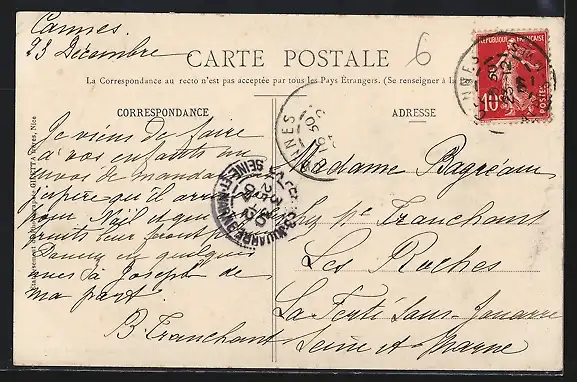 Cannes.
23 Décembre
CARTE POSTALE
6
La Correspondance au recto n'est pas acceptée par tous les Pays Étrangers. (Se renseigner à la
CORRESPONDANCE
ADRESSE
Je viens de faire
à vos enfants un
envoi de mandarines
j'espère qu'il arrivera
pour Noël et que
fruits leur feront
Donnez en quelques
unes à Joseph de
ma part.
B. Franchant
Madame Bagréaux
chez Mr Franchant
Les Roches
La Ferté sous Jouarre
Seine et Marne
RÉPUBLIQUE FRANÇAISE
10c
POSTES
CANNES
JOUARRE
SEINE-ET-MARNE
GILETTA frères, Nice